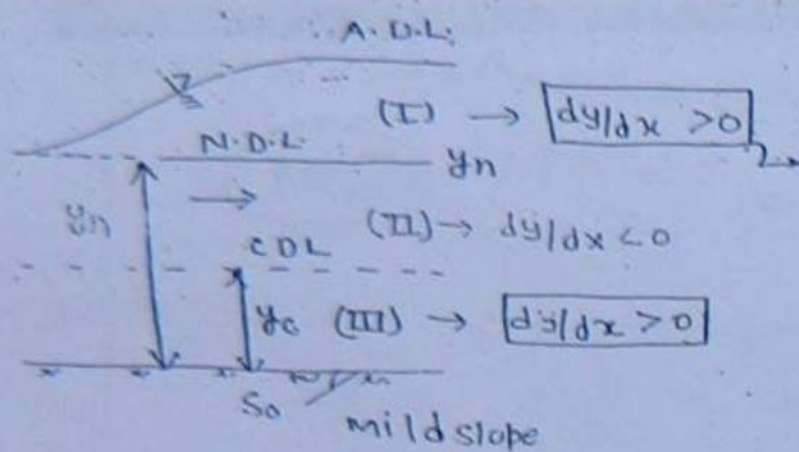 A.D.L.
(I) → dy/dx >0
N.D.L. yn
yn
(II) → dy/dx <0
CDL
yc (III) → dy/dx >0
So
mild slope